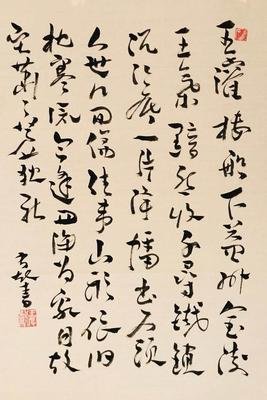 王濬樓船下益州金陵
王氣黯然收千尋鐵鎖
沉江底一片降幡出石頭
人世幾回傷往事山形依舊
枕寒流今逢四海為家日故
壘蕭蕭蘆荻秋
書